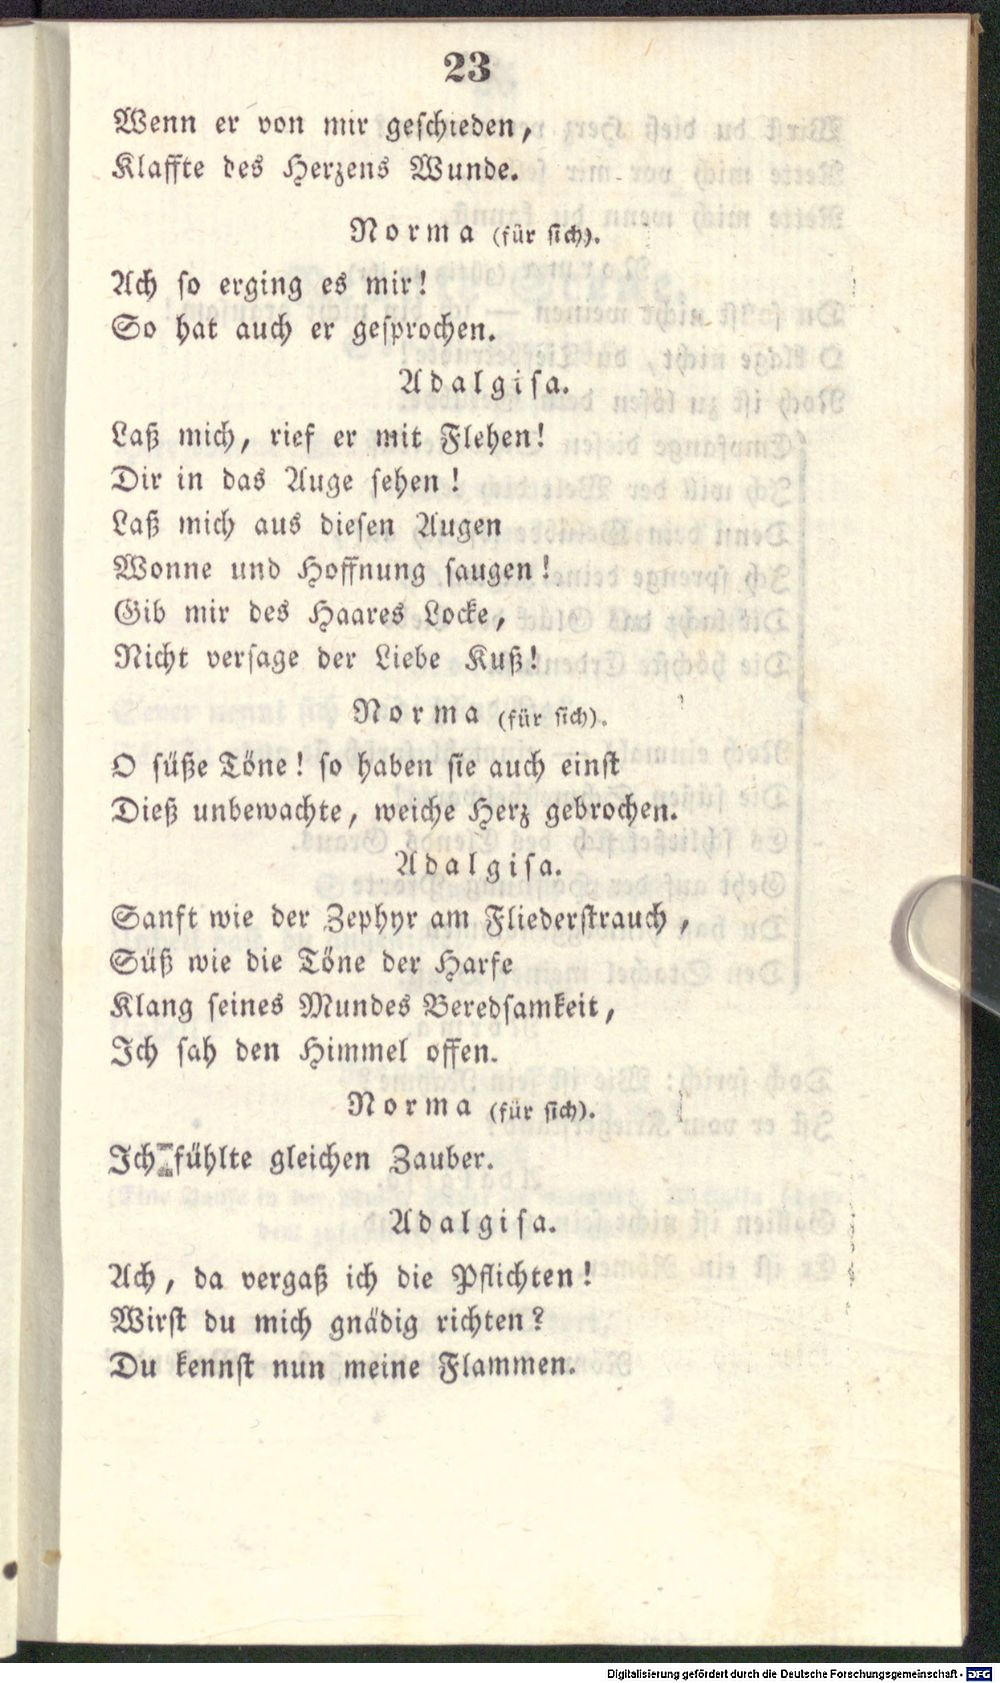 23
Wenn er von mir geschieden,
Klaffte des Herzens Wunde.
Norma (für sich).
Ach so erging es mir!
So hat auch er gesprochen.
Adalgisa.
Laß mich, rief er mit Flehen!
Dir in das Auge sehen!
Laß mich aus diesen Augen
Wonne und Hoffnung saugen!
Gib mir des Haares Locke,
Nicht versage der Liebe Kuß!
Norma (für sich).
O süße Töne! so haben sie auch einst
Dieß unbewachte, weiche Herz gebrochen.
Adalgisa.
Sanft wie der Zephyr am Fliederstrauch,
Süß wie die Töne der Harfe
Klang seines Mundes Beredsamkeit,
Ich sah den Himmel offen.
Norma (für sich).
Ich fühlte gleichen Zauber.
Adalgisa.
Ach, da vergaß ich die Pflichten!
Wirst du mich gnädig richten?
Du kennst nun meine Flammen.
Digitalisierung gefördert durch die Deutsche Forschungsgemeinschaft - DFG